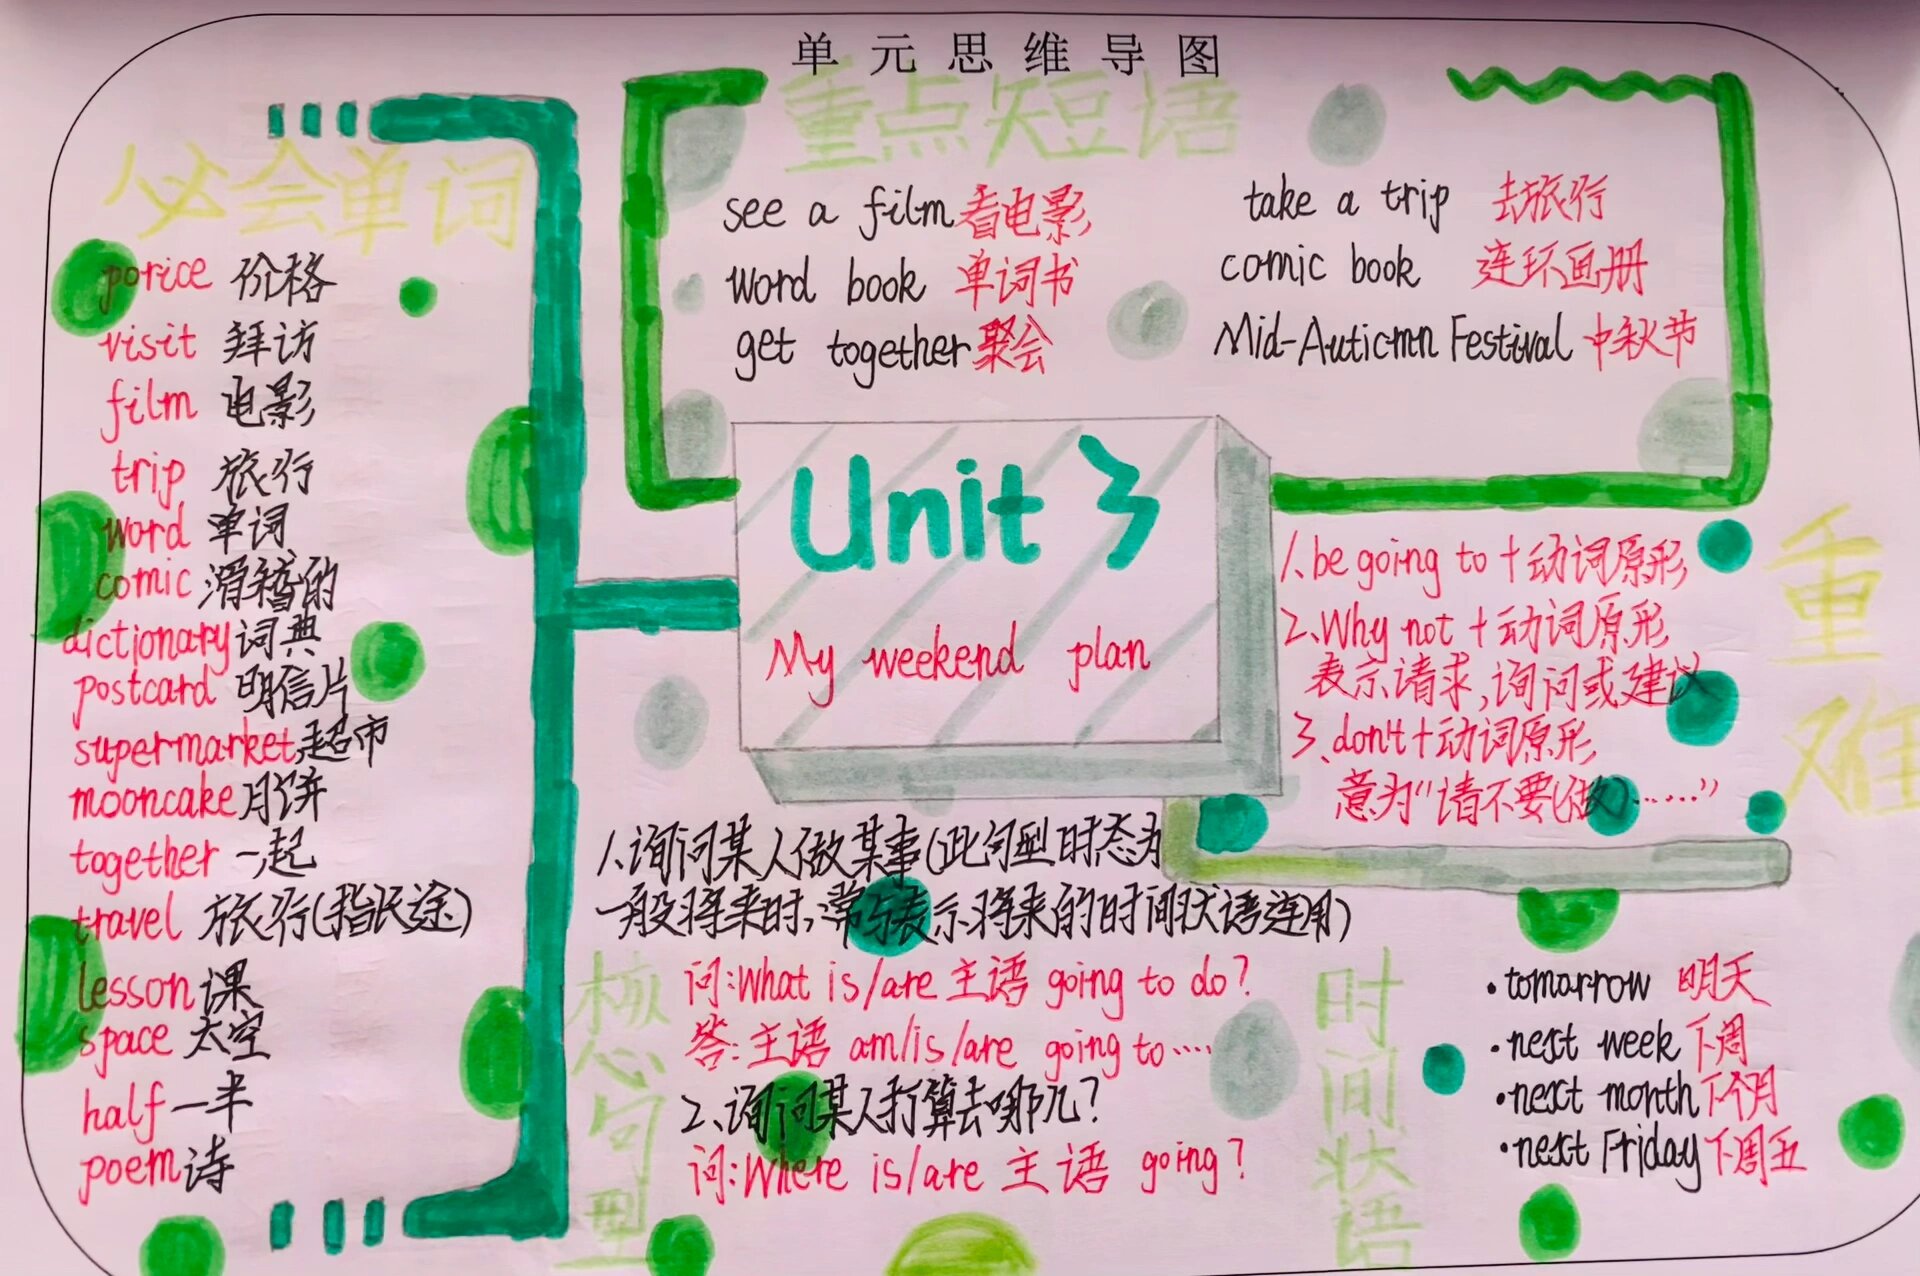 单元思维导图
必会单词
porice 价格
visit 拜访
film 电影
trip 旅行
word 单词
comic 滑稽的
dictionary 词典
postcard 明信片
supermarket 超市
mooncake 月饼
together 一起
travel 旅行(指长途)
lesson 课
space 太空
half 一半
poem 诗
重点短语
see a film 看电影
word book 单词书
get together 聚会
take a trip 去旅行
comic book 连环画册
Mid-Auticmn Festival 中秋节
Unit 3
My weekend plan
重难
1、be going to + 动词原形
2、Why not + 动词原形
表示请求,询问或建议
3、don't + 动词原形
意为“请不要(做)……”
核心句型
1、询问某人做某事(此句型时态为
一般将来时,常与表示将来的时间状语连用)
问:What is/are 主语 going to do?
答:主语 am/is/are going to……
2、询问某人打算去哪儿?
问:Where is/are 主语 going?
时间状语
·tomorrow 明天
·next week 下周
·next month 下个月
·next Friday 下周五